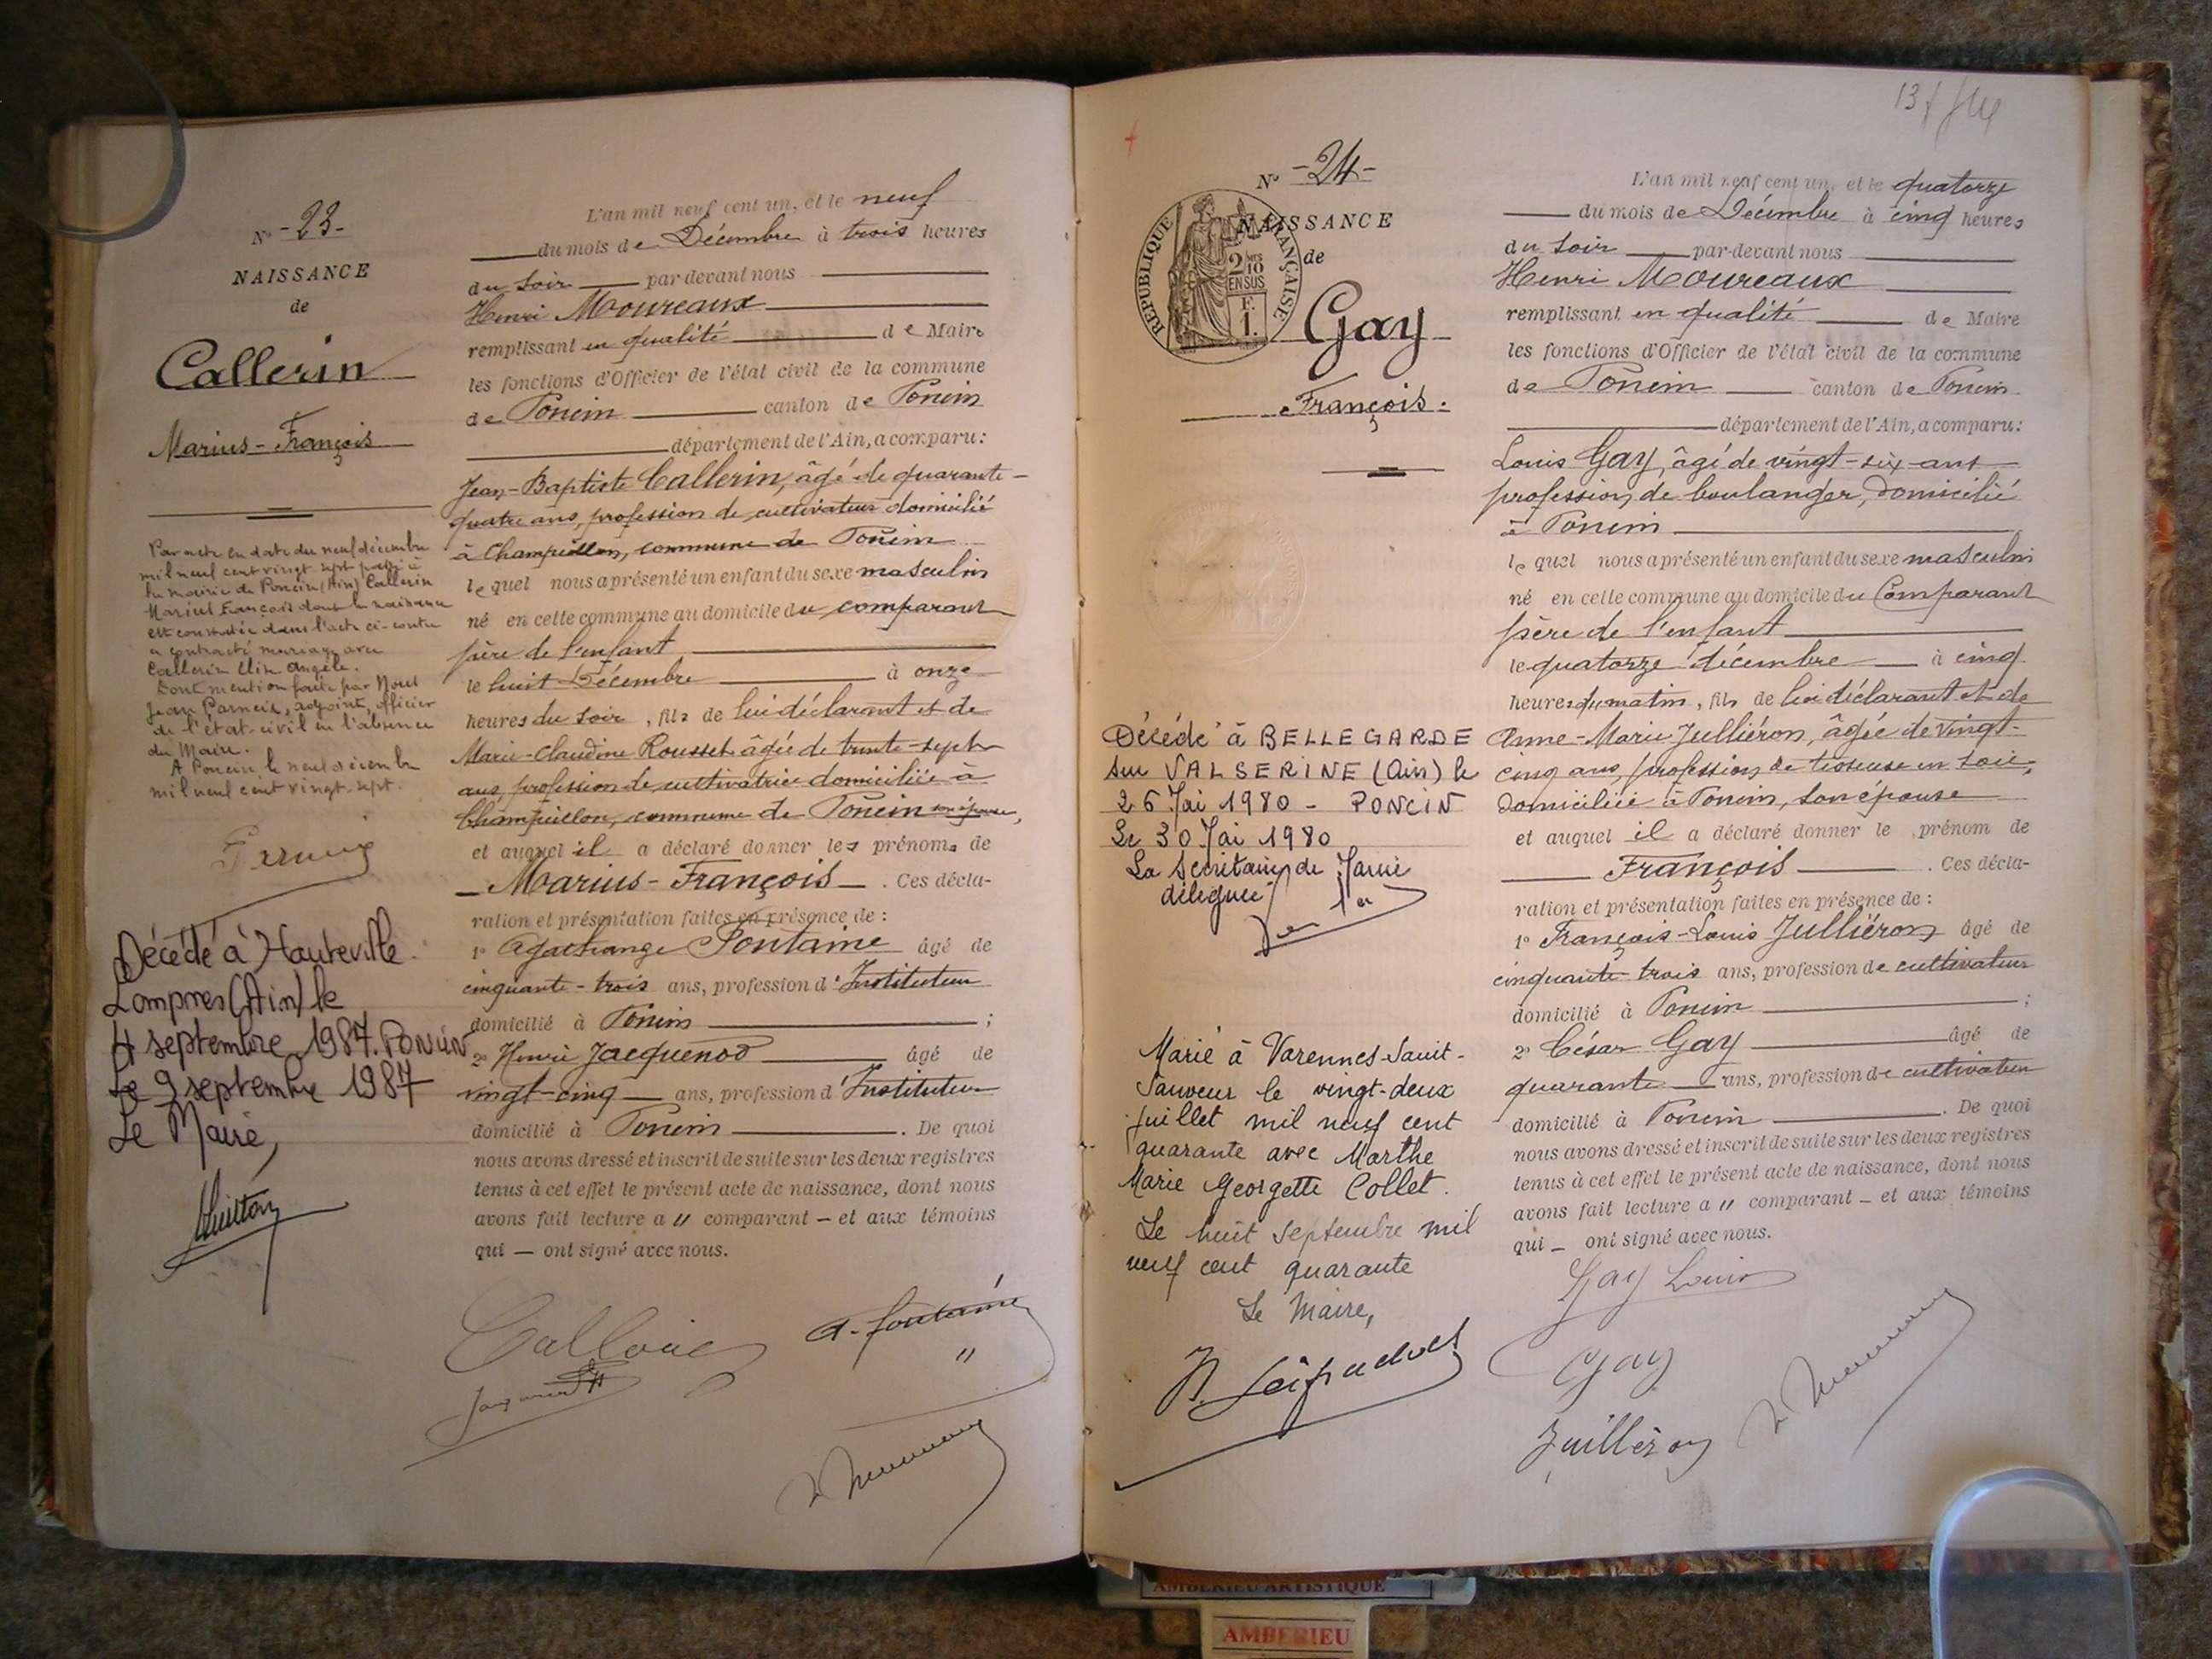 Nº -23-
NAISSANCE
de
Callerin
Marius-François
Par acte en date du neuf décembre
mil neuf cent vingt-sept passé à
la mairie de Poncin (Ain) Callerin
Marius François dont la naissance
est constatée dans l'acte ci-contre
a contracté mariage avec
Callerin Angèle.
Dont mention faite par
Jean adjoint, officier
de l'état-civil en l'absence
du Maire.
A Poncin le neuf décembre
mil neuf cent vingt-sept.
Décédé à Hauteville
Lompnes (Ain) le
4 septembre 1987. PONCIN
Le 9 septembre 1987
Le Maire,
L'an mil neuf cent un, et le neuf
du mois de Décembre à trois heures
du soir par-devant nous
Henri Moureaux
remplissant en qualité de Maire
les fonctions d'Officier de l'état civil de la commune
de Poncin canton de Poncin
département de l'Ain, a comparu:
Jean-Baptiste Callerin, âgé de quarante-
quatre ans, profession de cultivateur domicilié
à Champeillon, commune de Poncin
lequel nous a présenté un enfant du sexe masculin
né en cette commune au domicile du comparant
père de l'enfant
le huit Décembre à onze
heures du soir, fils de lui déclarant et de
Marie-Claudine Rousset âgée de trente-sept
ans, profession de cultivatrice domiciliée à
Champeillon, commune de Poncin son épouse,
et auquel il a déclaré donner les prénoms de
Marius-François. Ces décla-
ration et présentation faites en présence de:
1º Agathange Fontaine âgé de
cinquante-trois ans, profession d'Instituteur
domicilié à Poncin ;
2º Henri Jacquenod âgé de
vingt-cinq ans, profession d'Instituteur
domicilié à Poncin. De quoi
nous avons dressé et inscrit de suite sur les deux registres
tenus à cet effet le présent acte de naissance, dont nous
avons fait lecture a u comparant - et aux témoins
qui - ont signé avec nous.
A. Fontaine
Nº -24-
NAISSANCE
de
REPUBLIQUE FRANÇAISE
2 10
EN SUS
F.
1.
Gay
François.
Décédé à BELLEGARDE
sur VALSERINE (Ain) le
26 Mai 1980 - PONCIN
Le 30 Mai 1980
La Secrétaire de Mairie
déléguée
Marié à Varennes-Saint-
Sauveur le vingt-deux
juillet mil neuf cent
quarante avec Marthe
Marie Georgette Collet.
Le huit septembre mil
neuf cent quarante
Le Maire,
L'an mil neuf cent un, et le quatorze
du mois de Décembre à cinq heures
du soir par-devant nous
Henri Moureaux
remplissant en qualité de Maire
les fonctions d'Officier de l'état civil de la commune
de Poncin canton de Poncin
département de l'Ain, a comparu:
Louis Gay, âgé de vingt-six ans
profession de boulanger, domicilié
à Poncin
lequel nous a présenté un enfant du sexe masculin
né en cette commune au domicile du Comparant
père de l'enfant
le quatorze décembre à cinq
heures du matin, fils de lui déclarant et de
Anne-Marie Julliéron, âgée de vingt-
cinq ans, profession de tisseuse en soie,
domiciliée à Poncin, son épouse
et auquel il a déclaré donner le prénom de
François. Ces décla-
ration et présentation faites en présence de:
1º François-Louis Julliéron âgé de
cinquante-trois ans, profession de cultivateur
domicilié à Poncin ;
2º César Gay âgé de
quarante ans, profession de cultivateur
domicilié à Poncin. De quoi
nous avons dressé et inscrit de suite sur les deux registres
tenus à cet effet le présent acte de naissance, dont nous
avons fait lecture a u comparant - et aux témoins
qui - ont signé avec nous.
Gay Louis
Gay
Juilléron
AMBERIEU ARTISTIQUE
AMBERIEU